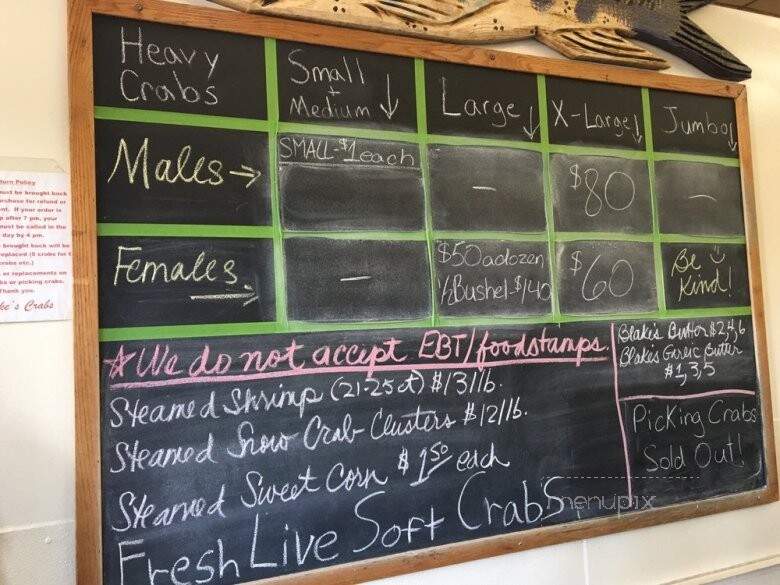 Heavy Crabs
Small + Medium ↓
Large ↓
X-Large ↓
Jumbo ↓
Males →
SMALL-$1 each
–
$80
–
Females →
–
$50 a dozen
½ Bushel-$140
$60
Be Kind!
☆ We do not accept EBT/foodstamps.
Blake's Butter $2,4,6
Blake's Garlic Butter
$1,3,5
Steamed Shrimp (21-25ct) $13/lb.
Steamed Snow Crab Clusters $12/lb.
Steamed Sweet Corn $1.50 each
Fresh Live Soft Crabs
Picking Crabs
Sold Out!
menupix
turn Policy
must be brought back
urchase for refund or
nt. If your order is
p after 7 pm, your
must be called in the
day by 4 pm.
brought back will be
replaced (8 crabs for
crabs etc.)
or replacements on
bs or picking crabs.
Thank you.
ke's Crabs